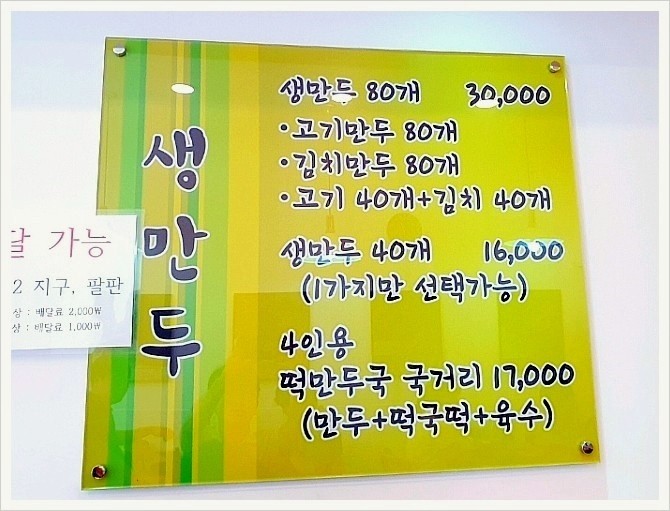 생만두
생만두 80개 30,000
·고기만두 80개
·김치만두 80개
·고기 40개+김치 40개
생만두 40개 16,000
(1가지만 선택가능)
4인용
떡만두국 국거리 17,000
(만두+떡국떡+육수)
달 가능
2 지구, 팔판
상 : 배달료 2,000₩
상 : 배달료 1,000₩